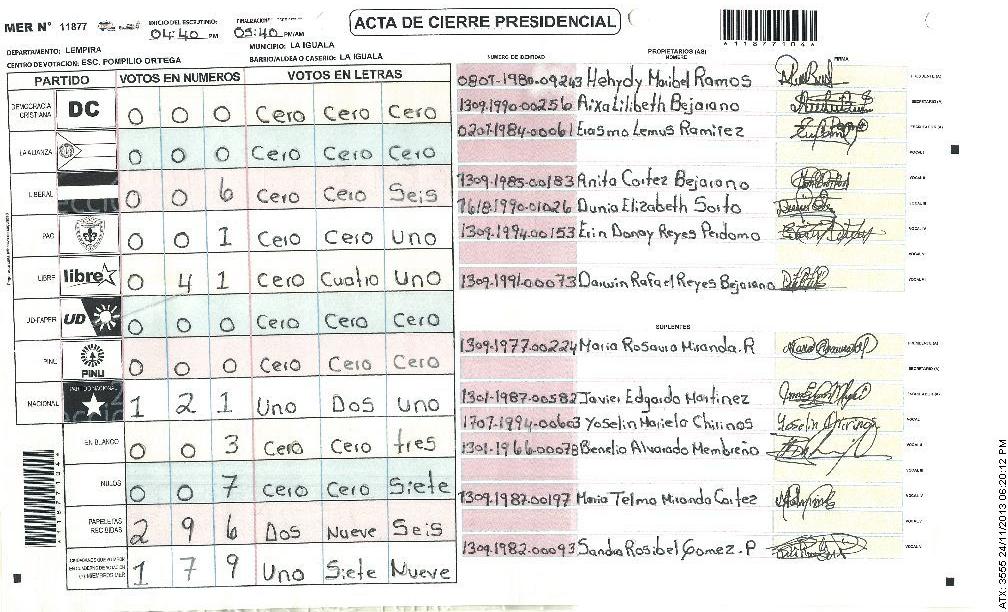 ACTA DE CIERRE PRESIDENCIAL
MER N° 11877
INICIO DEL ESCRUTINIO: 04:40 PM
FINALIZACION 05:40 PM/AM
11877104
DEPARTAMENTO: LEMPIRA
MUNICIPIO: LA IGUALA
CENTRO DE VOTACION: ESC. POMPILIO ORTEGA
BARRIO/ALDEA O CASERIO: LA IGUALA
PARTIDO VOTOS EN NUMEROS VOTOS EN LETRAS
DEMOCRACIA CRISTIANA DC 0 0 0 Cero Cero Cero
LA ALIANZA 0 0 0 Cero Cero Cero
LIBERAL 0 0 6 Cero Cero Seis
PAC 0 0 1 Cero Cero Uno
LIBRE libre 0 4 1 Cero Cuatro Uno
UD-FAPER UD 0 0 0 Cero Cero Cero
PINU PINU 0 0 0 Cero Cero Cero
NACIONAL PARTIDO NACIONAL 1 2 1 Uno Dos Uno
EN BLANCO 0 0 3 Cero Cero tres
NULOS 0 0 7 Cero Cero Siete
PAPELETAS RECIBIDAS 2 9 6 Dos Nueve Seis
1 7 9 Uno Siete Nueve
PROPIETARIOS (AS)
NUMERO DE IDENTIDAD NOMBRE FIRMA
0807-1980-09243 Hehydy Maribel Ramos PRESIDENTE (A)
1309-1990-00256 Aixa Lilibeth Bejarano SECRETARIO (A)
0207-1984-00061 Erasmo Lemus Ramirez ESCRUTADOR (A)
VOCAL I
1309-1985-00183 Anita Cortez Bejarano VOCAL II
1618-1990-01026 Dunia Elizabeth Sorto VOCAL III
1309-1994-00153 Erin Danay Reyes Perdomo VOCAL IV
VOCAL V
1309-1991-00073 Darwin Rafael Reyes Bejarano VOCAL VI
SUPLENTES
1309-1977-00224 Maria Rosaura Miranda.R
SECRETARIO (A)
1301-1987-00582 Javier Edgardo Martinez
1707-1994-00603 Yoselin Mariela Chirinos VOCAL I
1301-1966-00078 Benelio Alvarado Membreño VOCAL II
VOCAL III
1309-1987-00197 Maria Telma Miranda Cortez VOCAL IV
VOCAL V
1309-1982-00093 Sandra Rosibel Gomez.P VOCAL VI
11877104
ATX: 3555 24/11/2013 06:20:12 PM